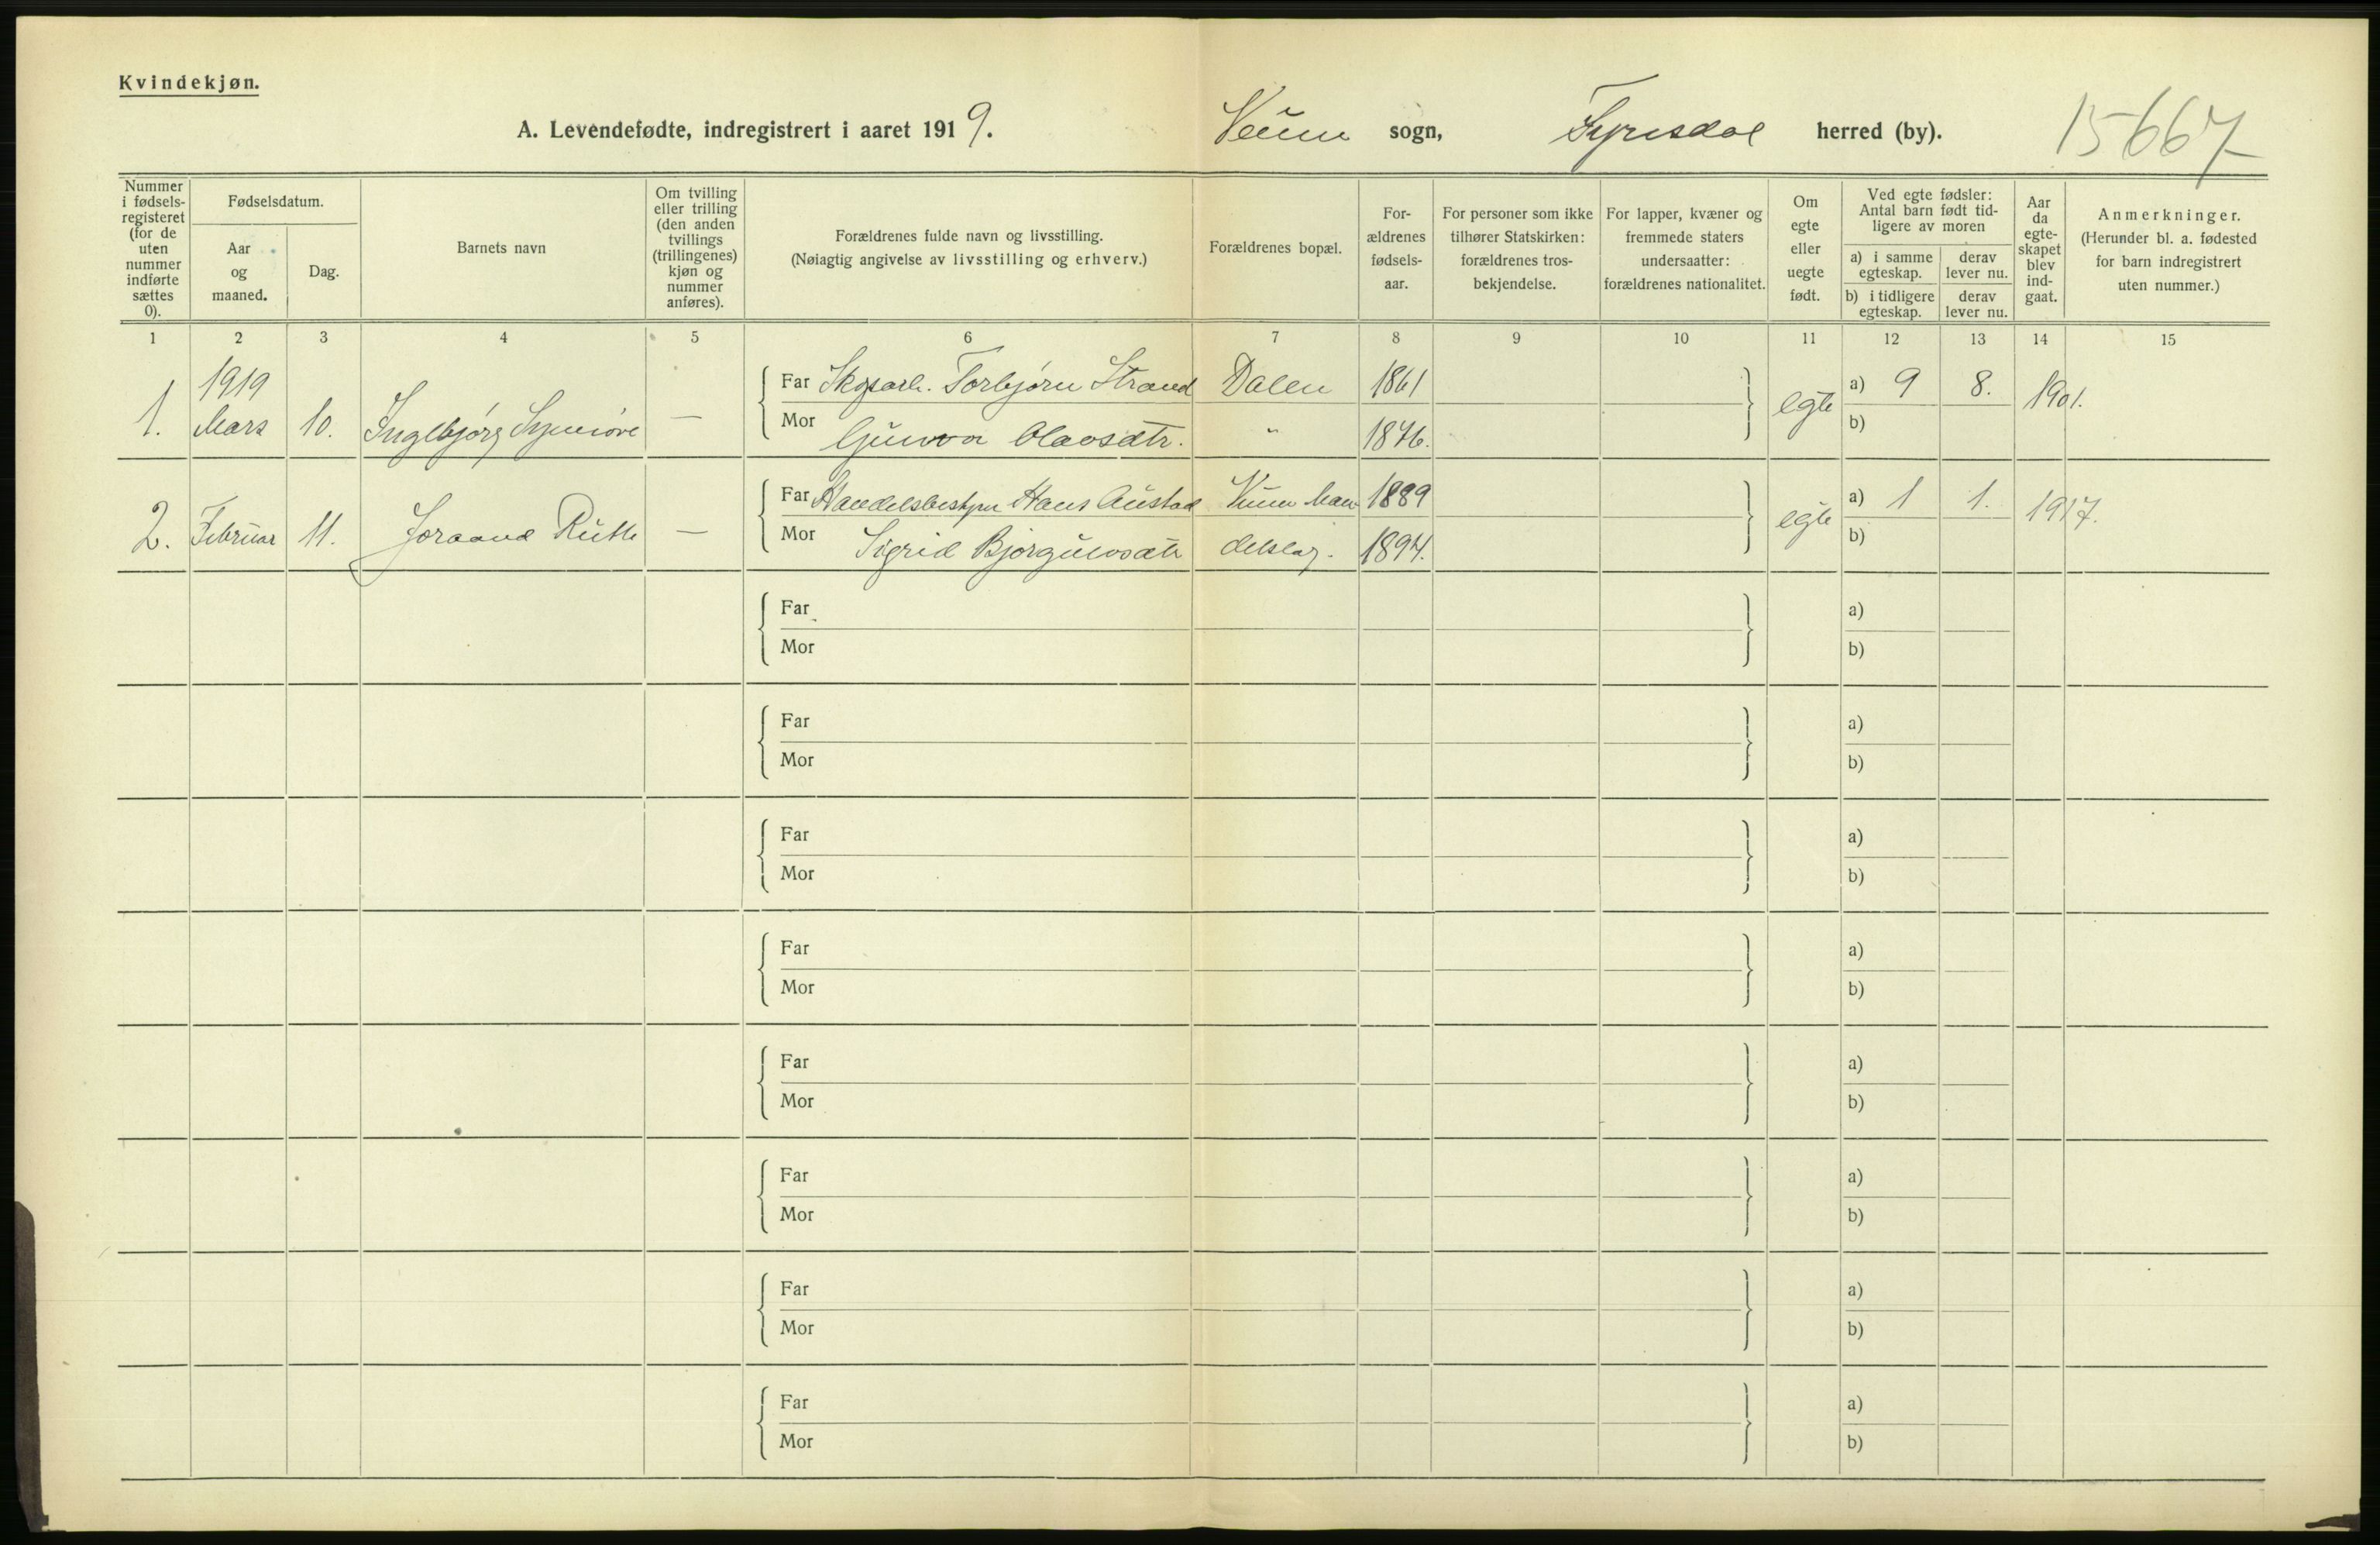 Kvindekjøn.
A. Levendefødte, indregistrert i aaret 1919. Veum sogn, Fyresdal herred (by). 15667
Nummer i fødsels-registeret (for de uten nummer indførte sættes 0).
Fødselsdatum.
Aar og maaned.
Dag.
Barnets navn
Om tvilling eller trilling (den anden tvillings (trillingenes) kjøn og nummer anføres).
Forældrenes fulde navn og livsstilling.
(Nøiagtig angivelse av livsstilling og erhverv.)
Forældrenes bopæl.
For-ældrenes fødsels-aar.
For personer som ikke tilhører Statskirken: forældrenes tros-bekjendelse.
For lapper, kvæner og fremmede staters undersaatter: forældrenes nationalitet.
Om egte eller uegte født.
Ved egte fødsler: Antal barn født tid-ligere av moren
a) i samme egteskap.
derav lever nu.
b) i tidligere egteskap.
derav lever nu.
Aar da egte-skapet blev ind-gaat.
Anmerkninger.
(Herunder bl. a. fødested for barn indregistrert uten nummer.)
1 2 3 4 5 6 7 8 9 10 11 12 13 14 15
1919
Far Skogsarb. Torbjørn Strand Dalen 1861 a) 9 8.
1. Mars 10. Ingebjørg Synnøve — egte 1901.
Mor Gunvor Olavsdtr. " 1876. b)
Far Handelsbestyr Hans Austad Veum Han 1889 a) 1 1.
2. Februar 11. Joraand Ruth — egte 1917.
Mor Sigrid Bjørgulvsdtr delslag. 1894. b)
Far a)
Mor b)
Far a)
Mor b)
Far a)
Mor b)
Far a)
Mor b)
Far a)
Mor b)
Far a)
Mor b)
Far a)
Mor b)
Far a)
Mor b)